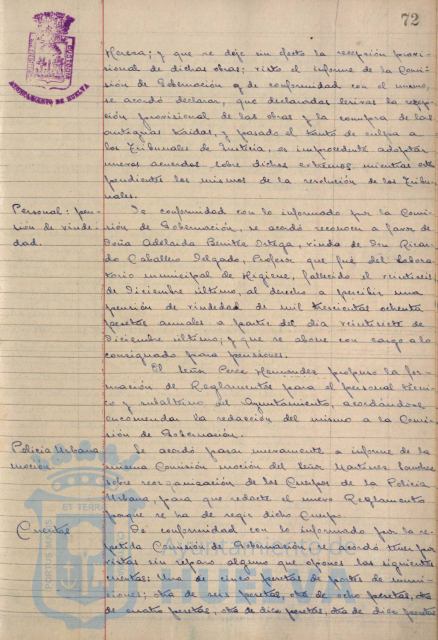 72
AYUNTAMIENTO DE HUELVA
Herera; y que se deje sin efecto la recepción provi-
sional de dichas obras; visto el informe de la Comi-
sión de Gobernación y de conformidad con el mismo,
se acordó declarar, que declaradas lesivas la recep-
ción provisional de las obras y la compra de las
antiguas Raidas, y pasado el tanto de culpa a
los Tribunales de Justicia, es improcedente adoptar
nuevos acuerdos, sobre dichos extremos mientras esté
pendientes los mismos de la resolución de los Tribu-
nales.
Personal: pen-
sión de viude-
dad.
De conformidad con lo informado por la Comi-
sión de Gobernación, se acordó reconocer a favor de
Doña Adelaida Benítez Ortega, viuda de Don Ricar-
do Caballero Delgado, Profesor que fué del Labora-
torio municipal de Higiene, fallecido el veintiseis
de Diciembre último, al derecho a percibir una
pensión de viudedad de mil trescientas ochenta
pesetas anuales a partir del día veintisiete de
Diciembre último; y que se abone con cargo a lo
consignado para pensiones.
El Señor Perez Hernandez propuso la for-
mación de Reglamentos para el personal técni-
co y subalterno del Ayuntamiento, acordándose
encomendar la redacción del mismo a la Comi-
sión de Gobernación.
Policia Urbana
moción.
Se acordó pasar nuevamente a informe de la
misma Comisión moción del Señor Martinez Sambre
sobre reorganización de los Cuerpos de la Policia
Urbana, para que redacte el nuevo Reglamento
porque se ha de regir dicho Cuerpo.
Cuentas
De conformidad con lo informado por la re-
petida Comisión de Gobernación, se acordó tener por
vistas sin reparo alguno que oponer las siguientes
cuentas: Una de cinco pesetas de portes de muni-
ciones; otra de seis pesetas, otra de ocho pesetas, otra
de cuatro pesetas, otra de diez pesetas, otra de diez pesetas
Ayuntamiento de